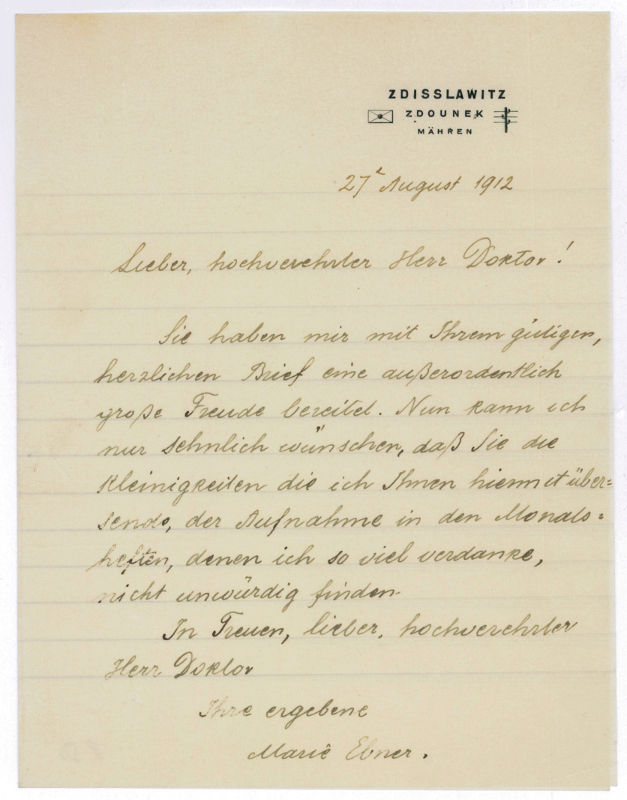 ZDISSLAWITZ
ZDOUNEK
MÄHREN
27t August 1912
Lieber, hochverehrter Herr Doktor!
Sie haben mir mit Ihrem gütigen,
herzlichen Brief eine außerordentlich
große Freude bereitet. Nun kann ich
nur sehnlich wünschen, daß Sie die
Kleinigkeiten die ich Ihnen hiermit über-
sende, der Aufnahme in den Monats-
heften, denen ich so viel verdanke,
nicht unwürdig finden.
In Treuen, lieber, hochverehrter
Herr Doktor
Ihre ergebene
Marie Ebner.